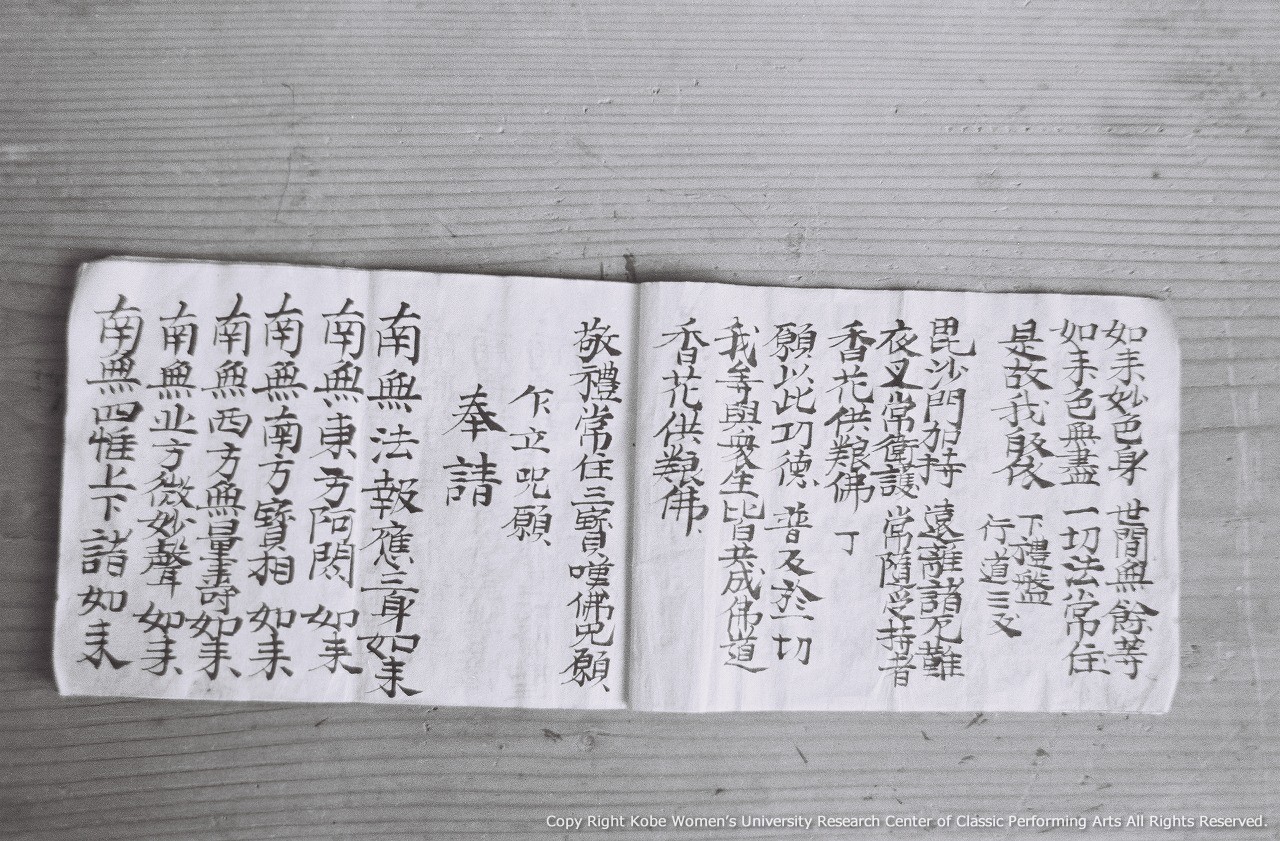 如来妙色身 世間無餘等
如来色無盡 一切法常住
是故我敬依 下禮盤
行道三反
毘沙門加持 遠離諸厄難
夜叉常衛護 常随受持者
香花供養佛 丁
願以此功徳 普及於一切
我等與衆生皆共成佛道
香花供養佛
敬禮常住三寳嘆佛咒願
乍立咒願
奉請
南無法報應三身如来
南無東方阿閦如来
南無南方寳相如来
南無西方無量壽如来
南無北方微妙聲如来
南無四惟上下諸如来
Copy Right Kobe Women's University Research Center of Classic Performing Arts All Rights Reserved.